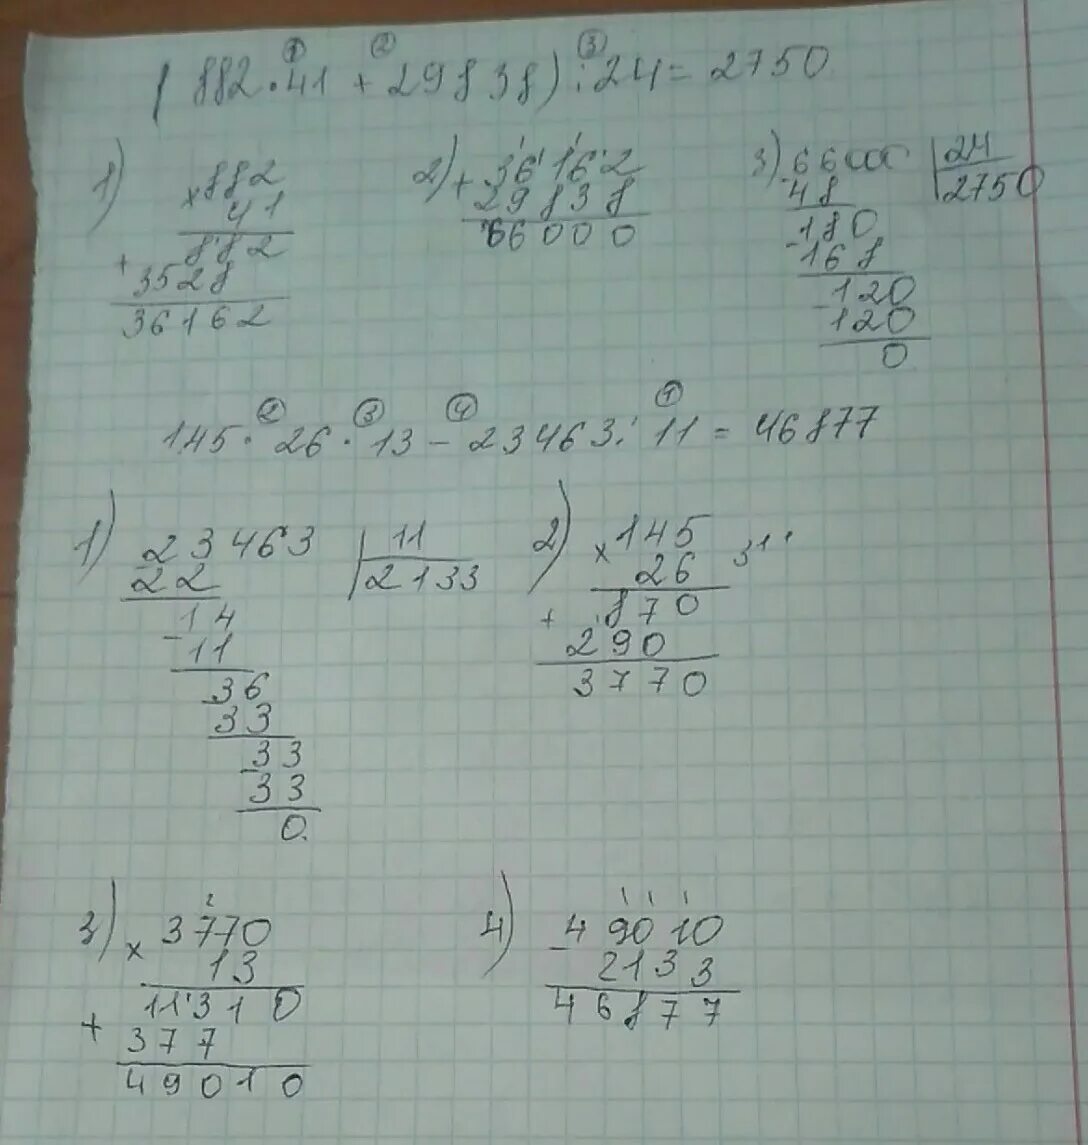 (882·41 + 29838) : 24 = 2750
① ② ③
1)
×882
41
+ 882
3528
36162
2)
+36162
29838
66000
3)
-66000 | 24
48 | 2750
180
-168
-120
120
0
145 · 26 · 13 - 23463 : 11 = 46877
② ③ ④ ①
1)
-23463 | 11
22 | 2133
-14
11
-36
33
-33
33
0
2)
×145
26
+ 870
290
3770
3)
×3770
13
+ 11310
377
49010
4)
-49010
2133
46877